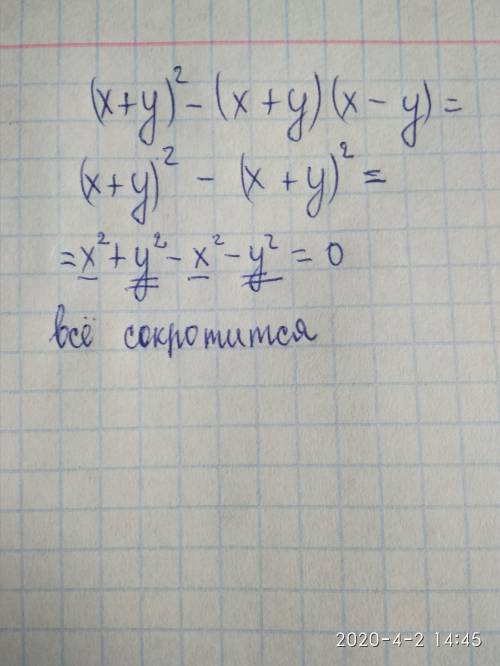 (x+y)² - (x+y)(x-y) =
(x+y)² - (x+y)² =
= x² + y² - x² - y² = 0
всё сокротится
2020-4-2 14:45